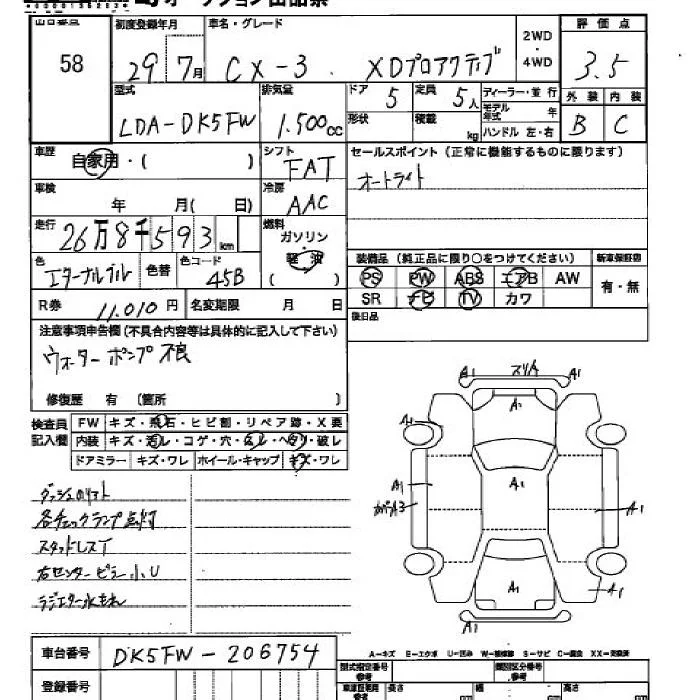 オークション出品票
出品番号 初度登録年月 車名・グレード 2WD・4WD 評価点
58 29年 7月 CX-3 XDプロアクティブ 3.5
型式 排気量 ドア 定員 ディーラー・並行 外装 内装
LDA-DK5FW 1.500cc 5 5人 モデル年式 年 B C
形状 積載 kg ハンドル 左・右
車歴 自家用・( ) シフト FAT セールスポイント(正常に機能するものに限ります)
車検 年 月( 日) 冷房 AAC オートライト
走行 26万8千593km 燃料 ガソリン・軽油 ( )
装備品(純正品に限り○をつけてください) 新車保証書
色 エターナルブル 色替 色コード 45B
PS PW ABS エアB AW 有・無
SR ナビ TV カワ
R券 11.010円 名変期限 月 日 後日品
注意事項申告欄(不具合内容等は具体的に記入して下さい)
ウォーターポンプ不良
修復歴 有 (箇所 )
検査員記入欄 FW キズ・飛石・ヒビ割・リペア跡・X要
内装 キズ・汚レ・コゲ・穴・ムレ・ヘタリ・破レ
ドアミラー キズ・ワレ ホイール・キャップ キズ・ワレ
各チェックランプ点灯
スタッドレスT
右センターピラー小U
ラジエター水もれ
A1 スリA A1
A1 A2 A1
A1 A1
A3 A1
A1 A1
A-キズ E-エクボ U-凹み W-補修跡 S-サビ C-腐食 XX-交換済
車台番号 DK5FW-206754
型式指定番号 参考 類別区分番号 参考
登録番号 長さ 幅 高さ